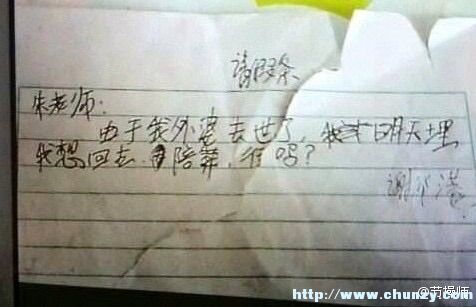 请假条
朱老师:
由于我外婆去世了,我 明天埋
我想回去 陪葬,行吗?
谢 港
http://www.chunzy.com
@劳操师